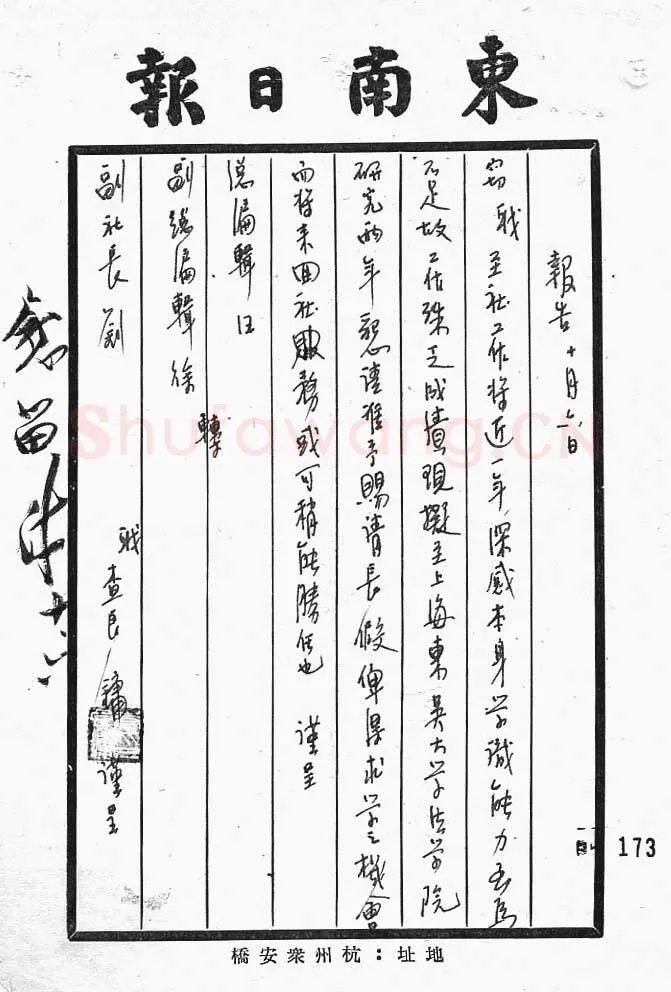 東南日報
報告 十月六日
竊職至社工作將近一年深感本身学識能力至為
不足故工作殊乏成績現擬至上海東吳大学法学院
研究兩年懇請准予賜請長假俾得求学之機會
而將來回社服務或可稍能勝任也 謹呈
總編輯汪
副總編輯徐 轉
副社長劉
職查良鏞謹呈
地址:杭州衆安橋
173
Shufawang.CN